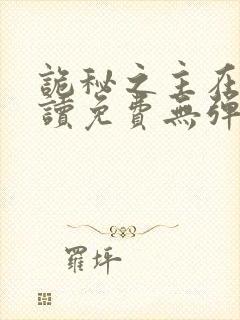 詭秘之主在
讀免費無彈
羅坪